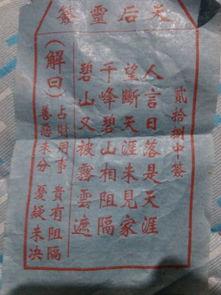 天后靈籤
貳拾捌中籤
人言日落是天涯
望斷天涯未見家
千峰碧山相阻隔
碧山又被霧雲遮
（解曰）
占財用事 貴有阻隔
善惡未分 憂疑未決